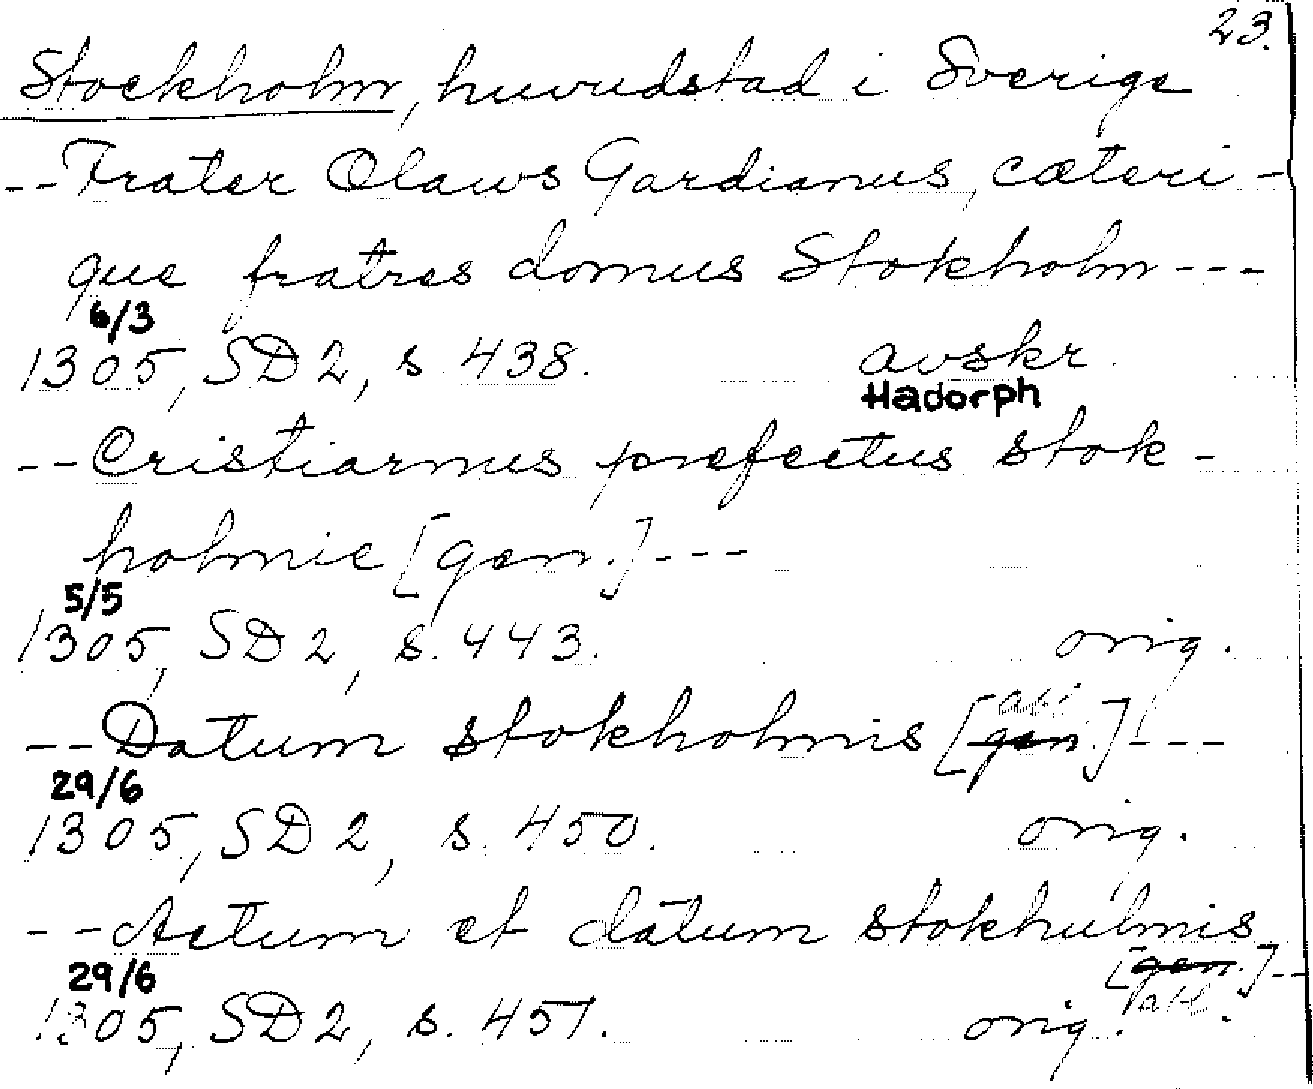 23.
Stockholm, huvudstad i Sverige
--Frater Olaws Gardianus, cæteri-
que fratres domus Stokholm---
6/3
1305, SD2, s. 438. avskr.
Hadorph
--Cristiarnus prefectus stok-
holmie [gen.]---
5/5
1305, SD2, s. 443. orig.
--Datum stokholmis [gen. abl.]---
29/6
1305, SD2, s. 450. orig.
--Actum et datum stokhulmis
[gen.]--
29/6 abl.
1305, SD2, s. 451. orig.